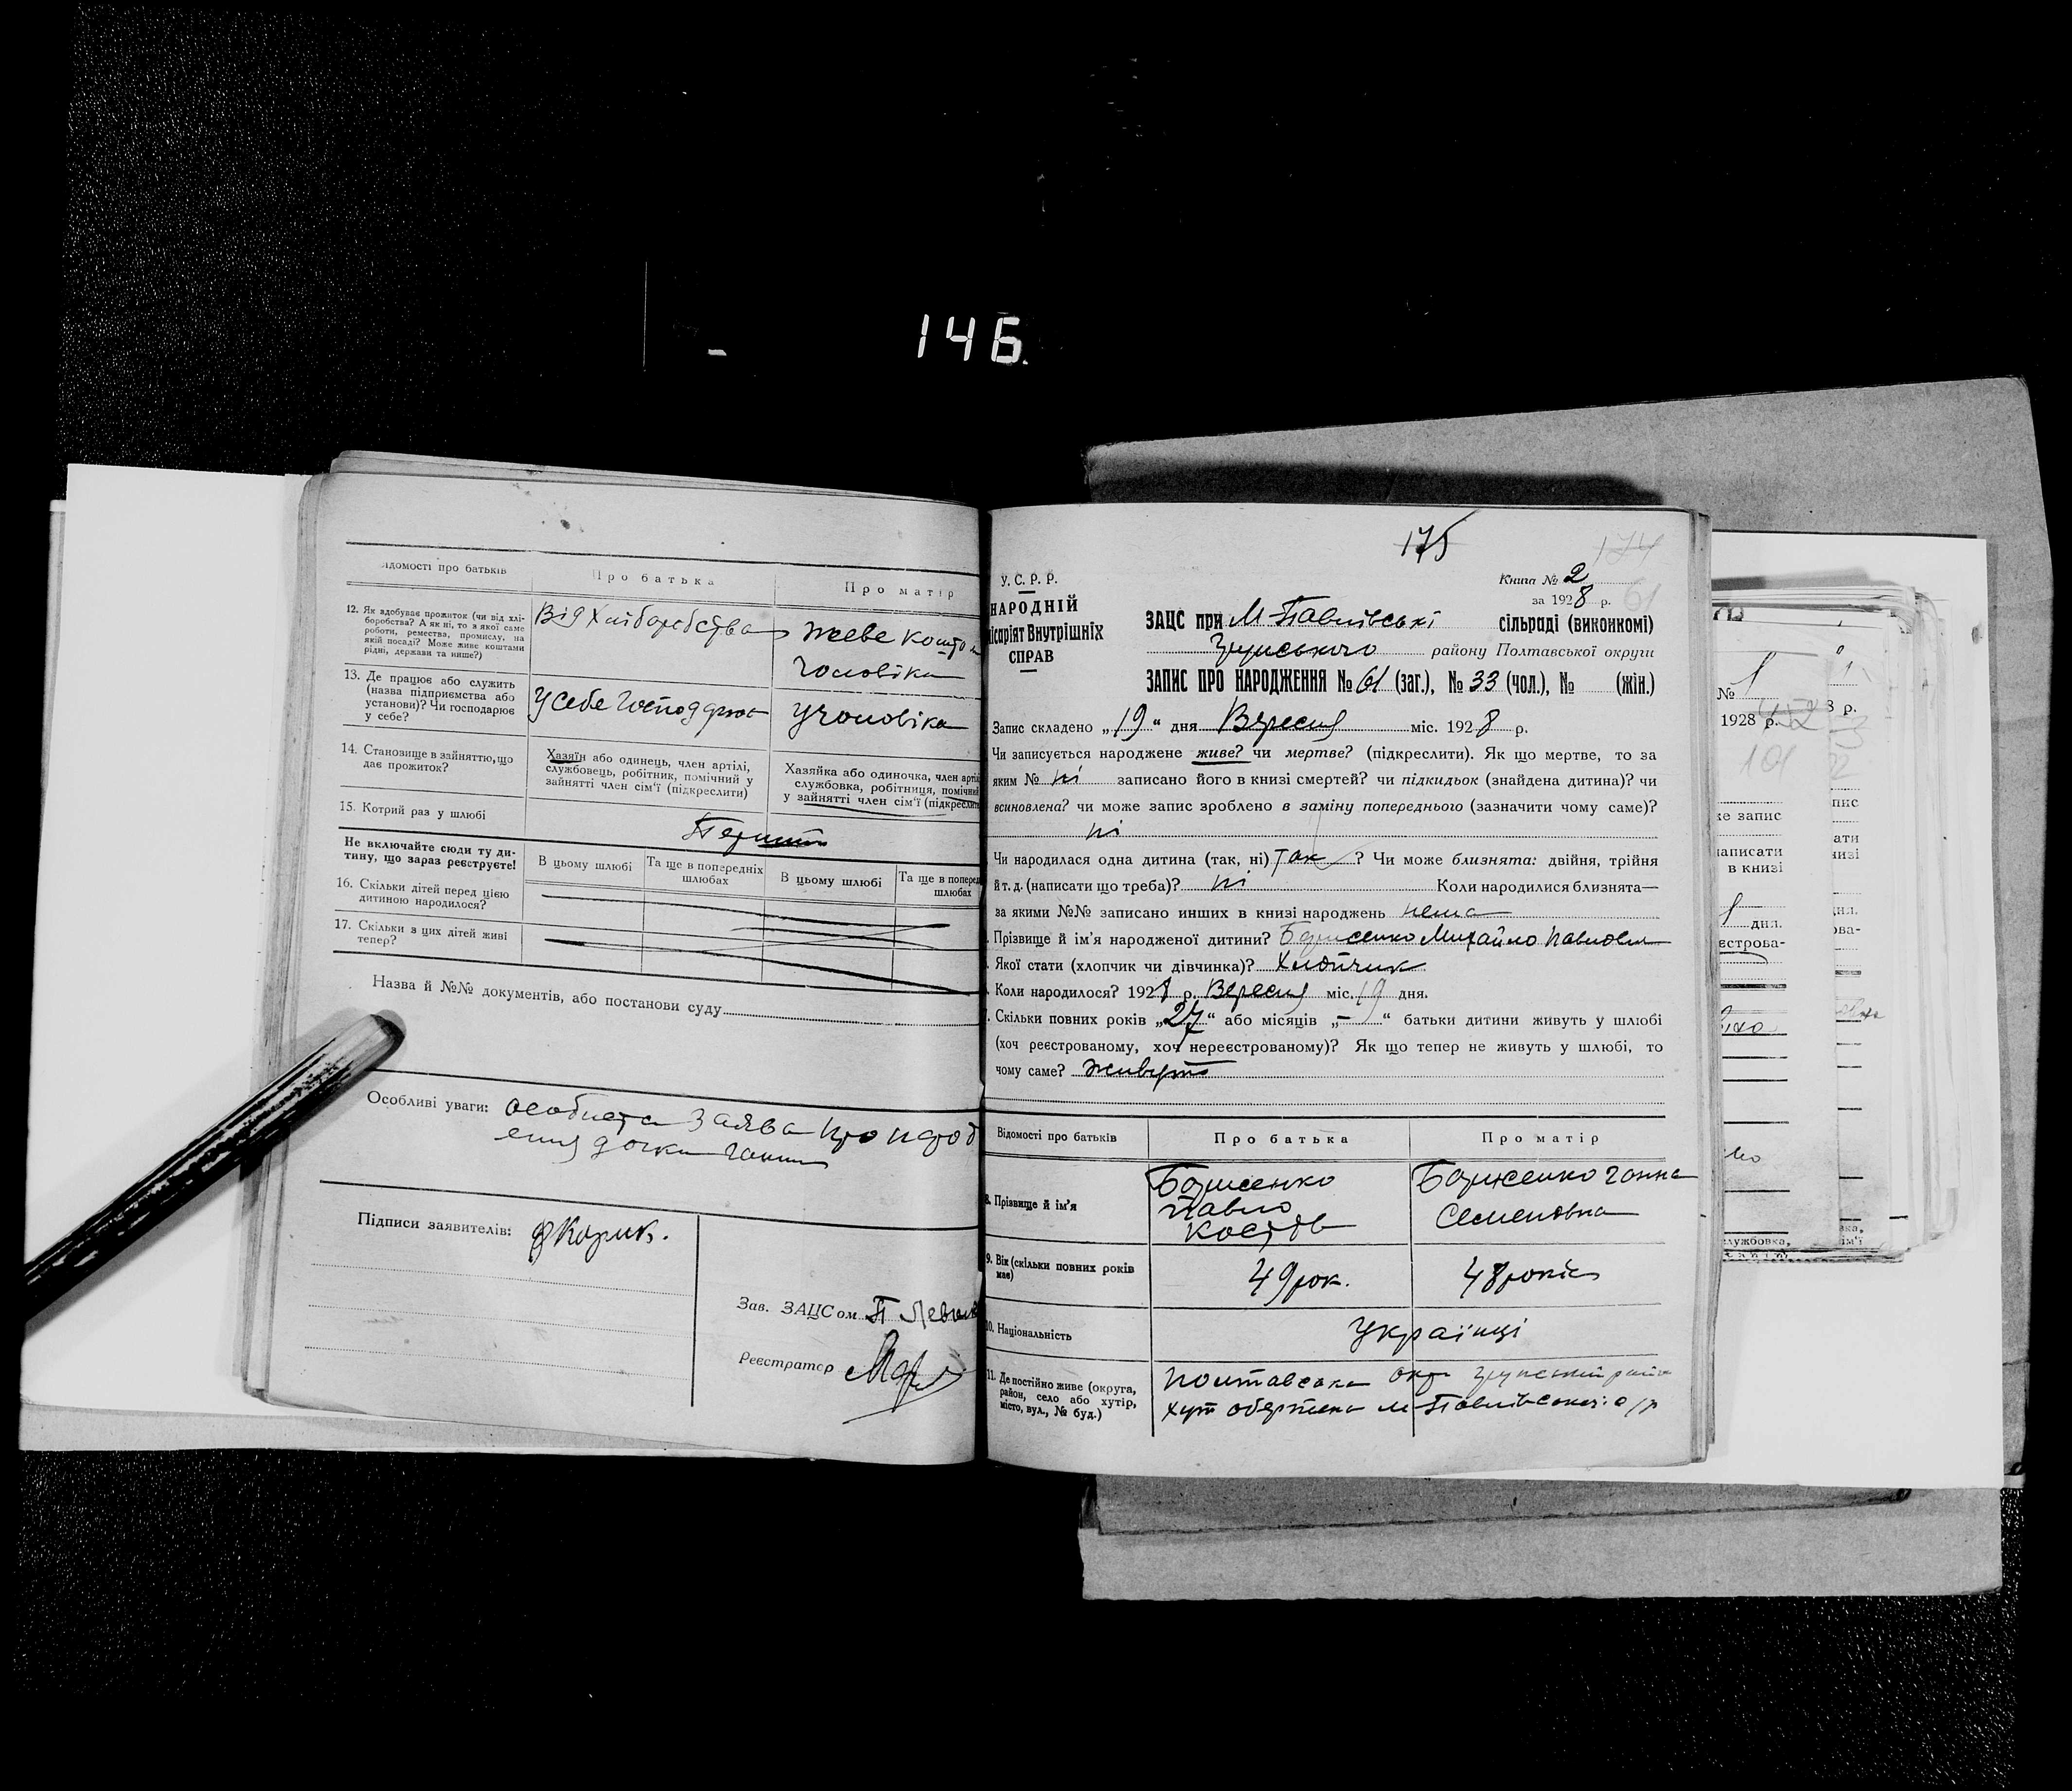 146.
Відомості про батьків
Про батька
Про матір
12. Як здобуває прожиток (чи від хлі-
боробства? А як ні, то з якої саме
роботи, ремества, промислу, на
якій посаді? Може живе коштами
рідні, держави та инше?)
Від Хліборобства
живе кошто
чоловіка
13. Де працює або служить
(назва підприємства або
установи)? Чи господарює
у себе?
У себе Господарює
У чоловіка
14. Становище в зайняттю, що
дає прожиток?
Хазяїн або одинець, член артілі,
службовець, робітник, помічний у
зайнятті член сім'ї (підкреслити)
Хазяйка або одиночка, член артіл
службовка, робітниця, помічний
у зайнятті член сім'ї (підкреслити
15. Котрий раз у шлюбі
Не включайте сюди ту ди-
тину, що зараз реєструєте!
В цьому шлюбі
Та ще в попередніх
шлюбах
В цьому шлюбі
Та ще в поперед
шлюбах
16. Скільки дітей перед цією
дитиною народилося?
17. Скільки з цих дітей живі
тепер?
Назва й №№ документів, або постанови суду
Особливі уваги: особиста заява про народ
ення дочки Ганни
Підписи заявителів:
Зав. ЗАЦСом П Левч
Реєстратор
175
174
У. С. Р. Р.
НАРОДНІЙ
місаріят Внутрішніх
СПРАВ
Книга № 2
за 1928 р. 61
ЗАЦС при М-Павлівські сільраді (виконкомі)
Зіньського району Полтавської округи
ЗАПИС ПРО НАРОДЖЕННЯ № 61 (заг.), № 33 (чол.), № (жін.)
Запис складено „19“ дня Вересня міс. 1928 р.
Чи записується народжене живе? чи мертве? (підкреслити). Як що мертве, то за
яким № ні записано його в книзі смертей? чи підкидьок (знайдена дитина)? чи
всиновлена? чи може запис зроблено в заміну попереднього (зазначити чому саме)?
ні
Чи народилася одна дитина (так, ні) так ? Чи може близнята: двійня, трійня
й т. д. (написати що треба)? ні Коли народилися близнята—
за якими №№ записано инших в книзі народжень нема
Прізвище й ім'я народженої дитини? Борисенко Михайло Павлович
Якої стати (хлопчик чи дівчинка)? Хлопчик
Коли народилося? 1928 р. Вересня міс. 19 дня.
Скільки повних років „27“ або місяців „–“ батьки дитини живуть у шлюбі
(хоч реєстрованому, хоч нереєстрованому)? Як що тепер не живуть у шлюбі, то
чому саме? живуть
Відомості про батьків
Про батька
Про матір
8. Прізвище й ім'я
Борисенко
Павло
Костов
Борисенко Ганна
Семеновна
9. Вік (скільки повних років
має)
49 рок.
48 років
10. Національність
Українці
11. Де постійно живе (округа,
район, село або хутір,
місто, вул., № буд.)
Полтавська окр
хут М-Павлівської с/р
№ 1
1928 р.
101
8 р.
же запис
написати
в книзі
дня.
єстрова-
службовка,